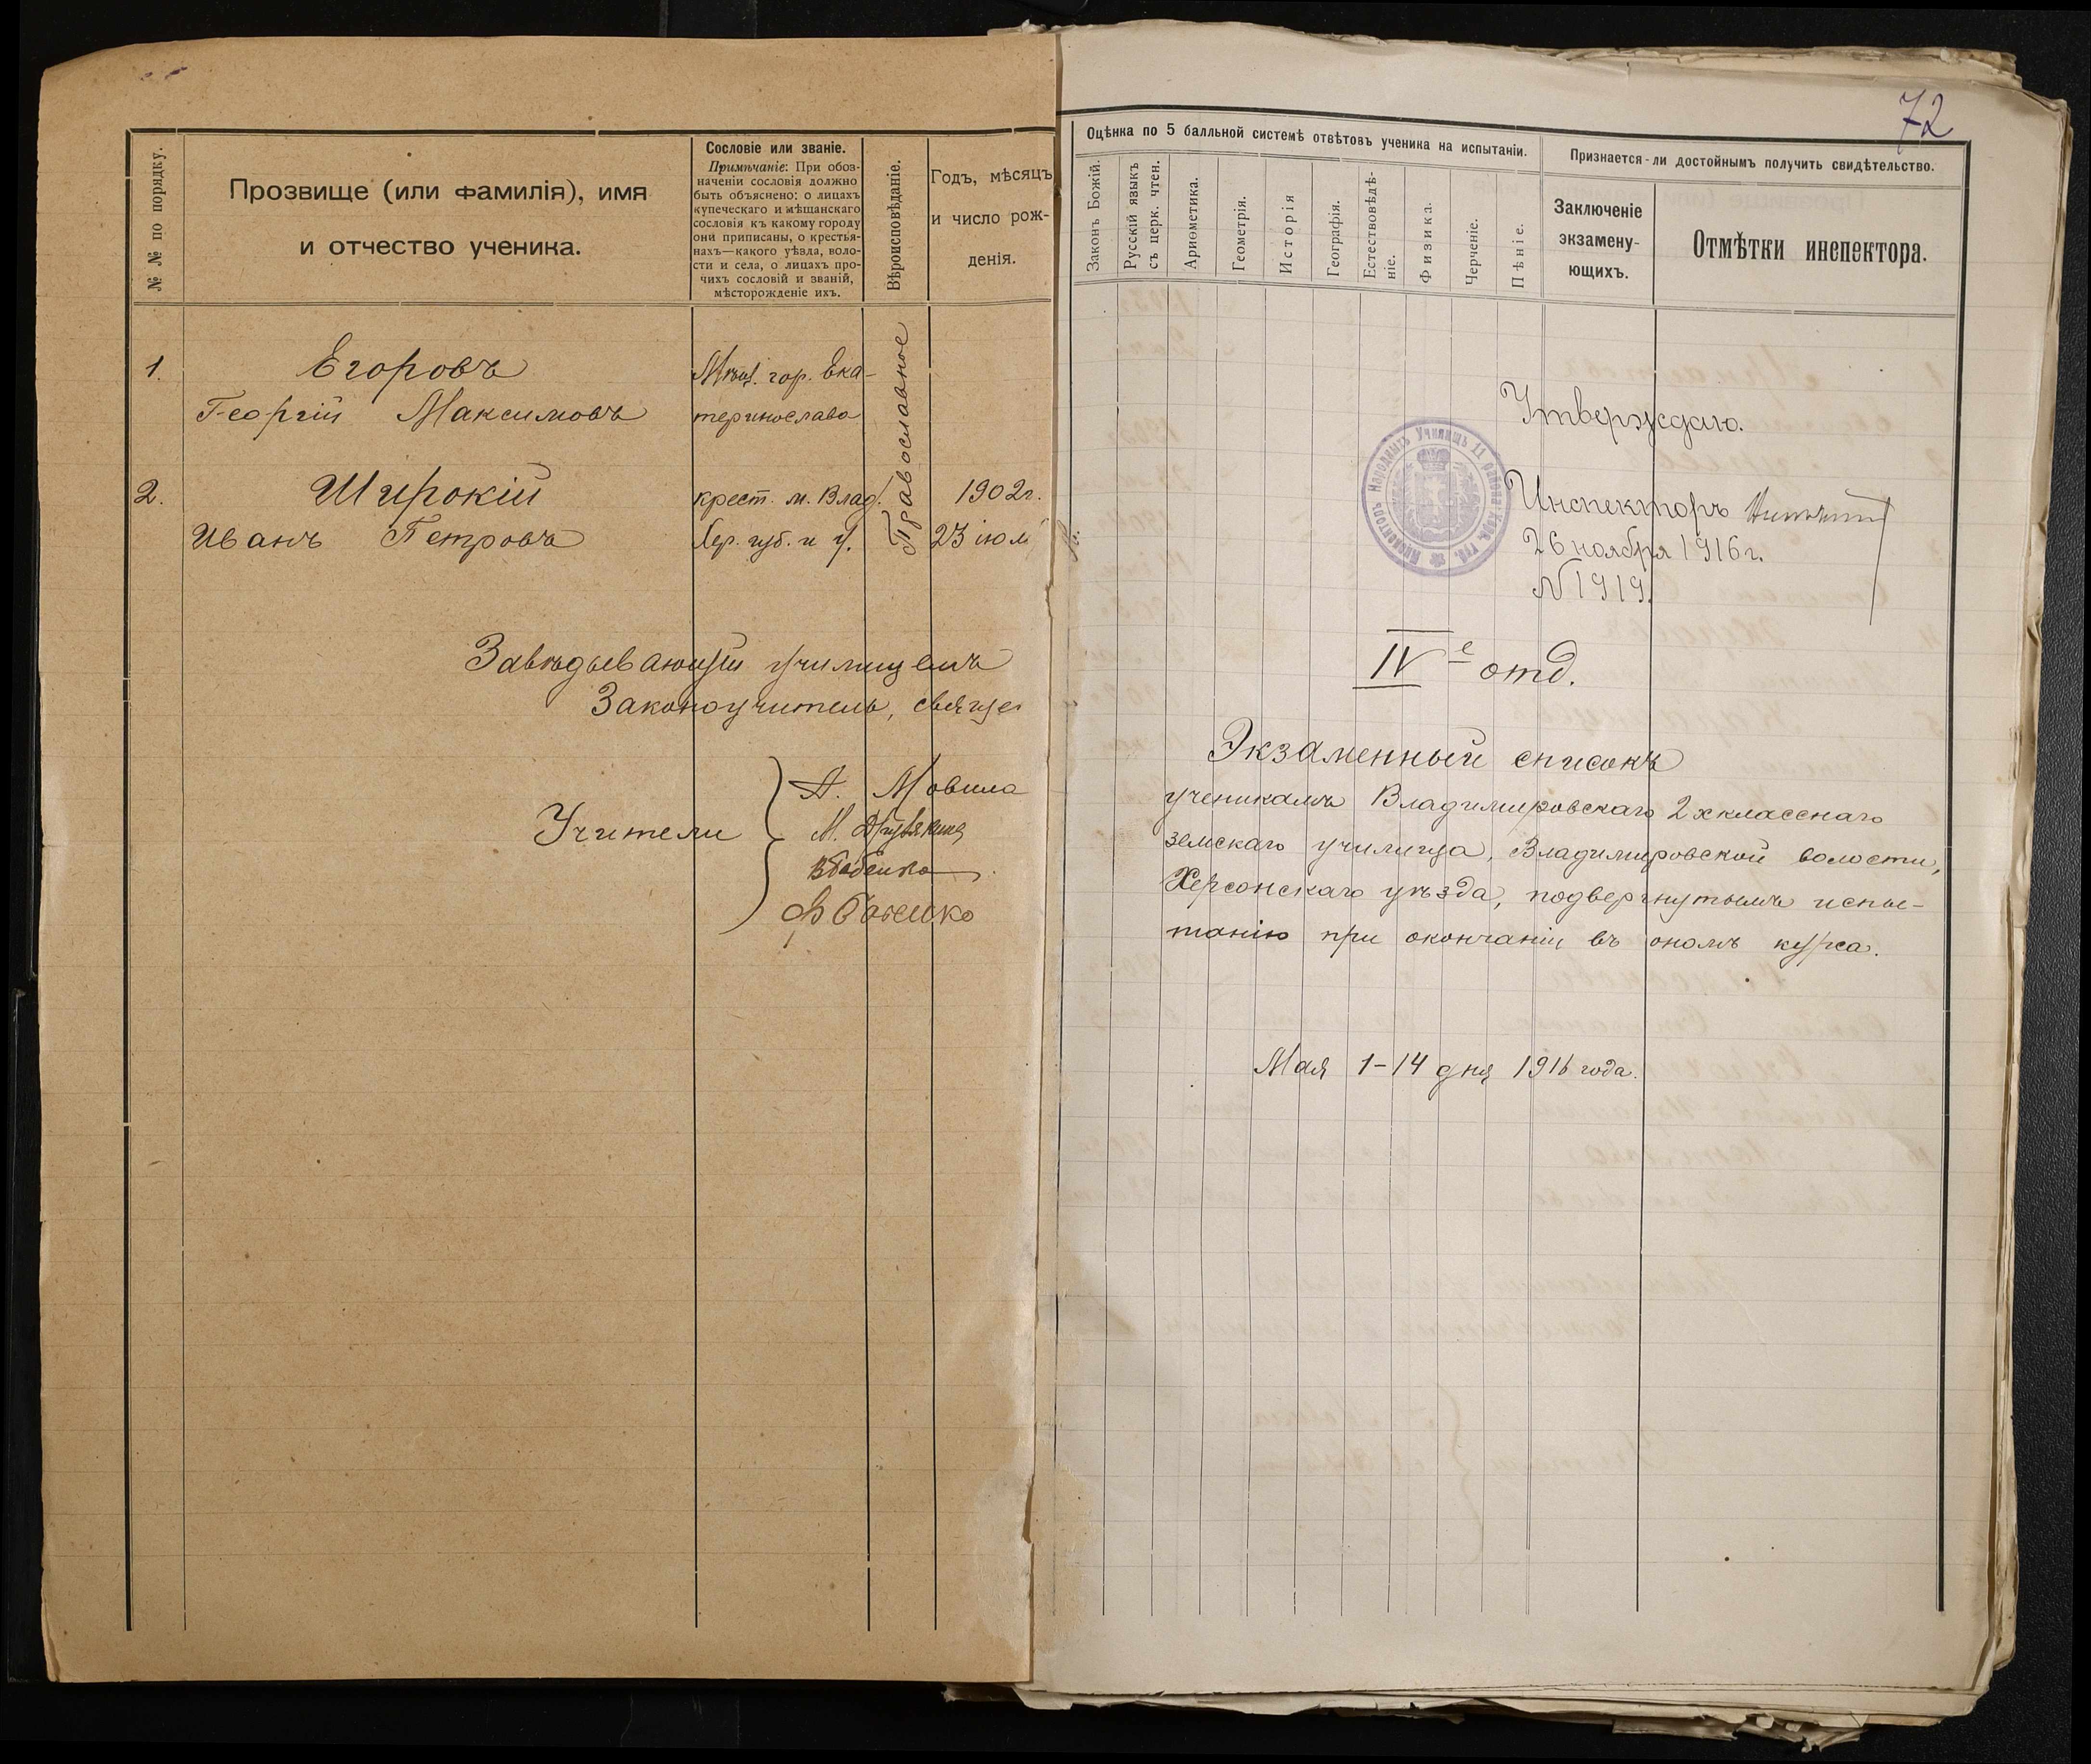 72
№ № по порядку.
Прозвище (или фамилія), имя
и отчество ученика.
Сословіе или званіе.
Примѣчаніе: При обоз-
наченіи сословія должно
быть объяснено: о лицахъ
купеческаго и мѣщанскаго
сословія къ какому городу
они приписаны, о крестья-
нахъ—какого уѣзда, воло-
сти и села, о лицахъ про-
чихъ сословій и званій,
мѣсторожденіе ихъ.
Вѣроисповѣданіе.
Годъ, мѣсяцъ
и число рож-
денія.
1. Егоровъ
Георгій Максимовъ
Мѣщ. гор. Ека-
теринослава
Православное
2. Широкій
Иванъ Петровъ
крест. м. Влад.
Хер. губ. и у.
1902г.
23 іюл
Завѣдывающій училищемъ
Законоучитель, свяще
Учители
А. Мовила
М.
В Бабенко
Оцѣнка по 5 балльной системѣ отвѣтовъ ученика на испытаніи.
Законъ Божій.
Русскій языкъ
съ церк. чтен.
Ариѳметика.
Геометрія.
Исторія
Географія.
Естествовѣдѣ-
ніе.
Физика.
Черченіе.
Пѣніе.
Признается-ли достойнымъ получить свидѣтельство.
Заключеніе
экзамену-
ющихъ.
Отмѣтки инспектора.
Утверждаю.
Инспекторъ
26 ноября 1916 г.
N 1919.
Инспекторъ Народныхъ Училищъ 11 района Хер. губ.
IV е отд.
Экзаменный списокъ
ученикамъ Владимировскаго 2хкласснаго
земскаго училища, Владимировской волости,
Херсонскаго уѣзда, подвергнутымъ испы-
танію при окончаніи въ ономъ курса.
Мая 1-14 дня 1916 года.